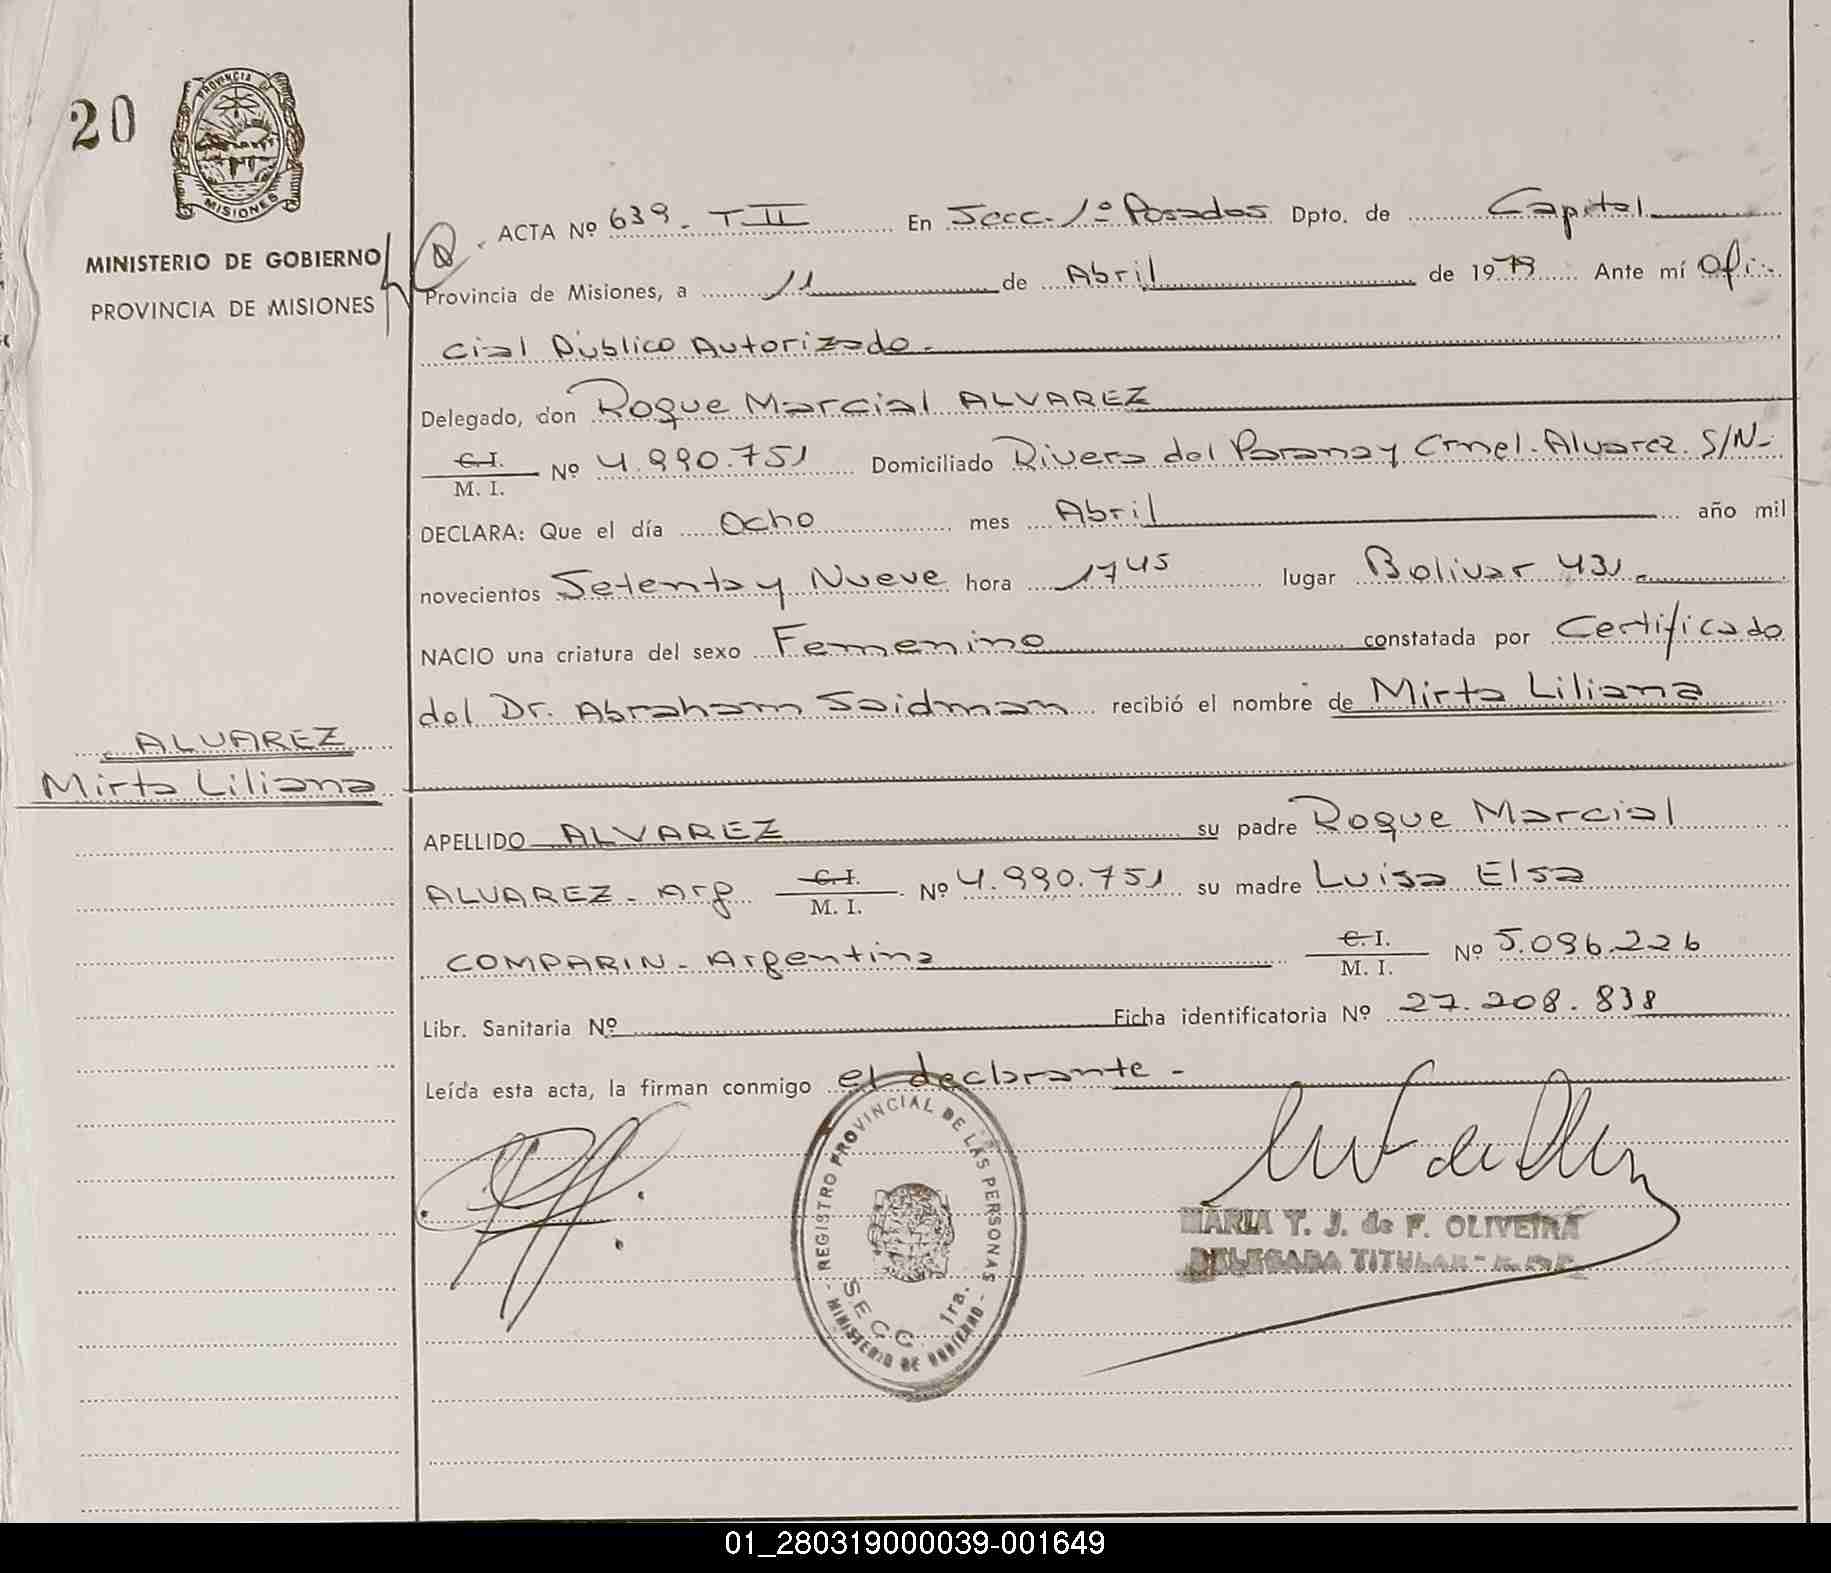 20
PROVINCIA DE
MISIONES
MINISTERIO DE GOBIERNO
PROVINCIA DE MISIONES
ACTA Nº 639 - T II En Secc. 1º Posadas Dpto. de Capital
Provincia de Misiones, a 11 de Abril de 1979 Ante mí Ofi-
cial Público Autorizado.-
Delegado, don Roque Marcial ALVAREZ
C.I. M. I. Nº 4.990.751 Domiciliado Rivera del Parana y Crnel. Alvarez. S/N-
DECLARA: Que el día Ocho mes Abril año mil
novecientos Setenta y Nueve hora 1745 lugar Bolivar 431.-
NACIO una criatura del sexo Femenino constatada por Certificado
del Dr. Abraham Saidman recibió el nombre de Mirta Liliana
ALVAREZ
Mirta Liliana
APELLIDO ALVAREZ su padre Roque Marcial
ALVAREZ - Arg C.I. M. I. Nº 4.990.751 su madre Luisa Elsa
COMPARIN - Argentina C.I. M. I. Nº 5.096.226
Libr. Sanitaria Nº Ficha identificatoria Nº 27.208.838
Leída esta acta, la firman conmigo el declarante -
REGISTRO PROVINCIAL DE LAS PERSONAS
SECC. 1ra.
- MINISTERIO DE GOBIERNO -
MARIA T. J. de F. OLIVEIRA
DELEGADA TITULAR -
01_280319000039-001649